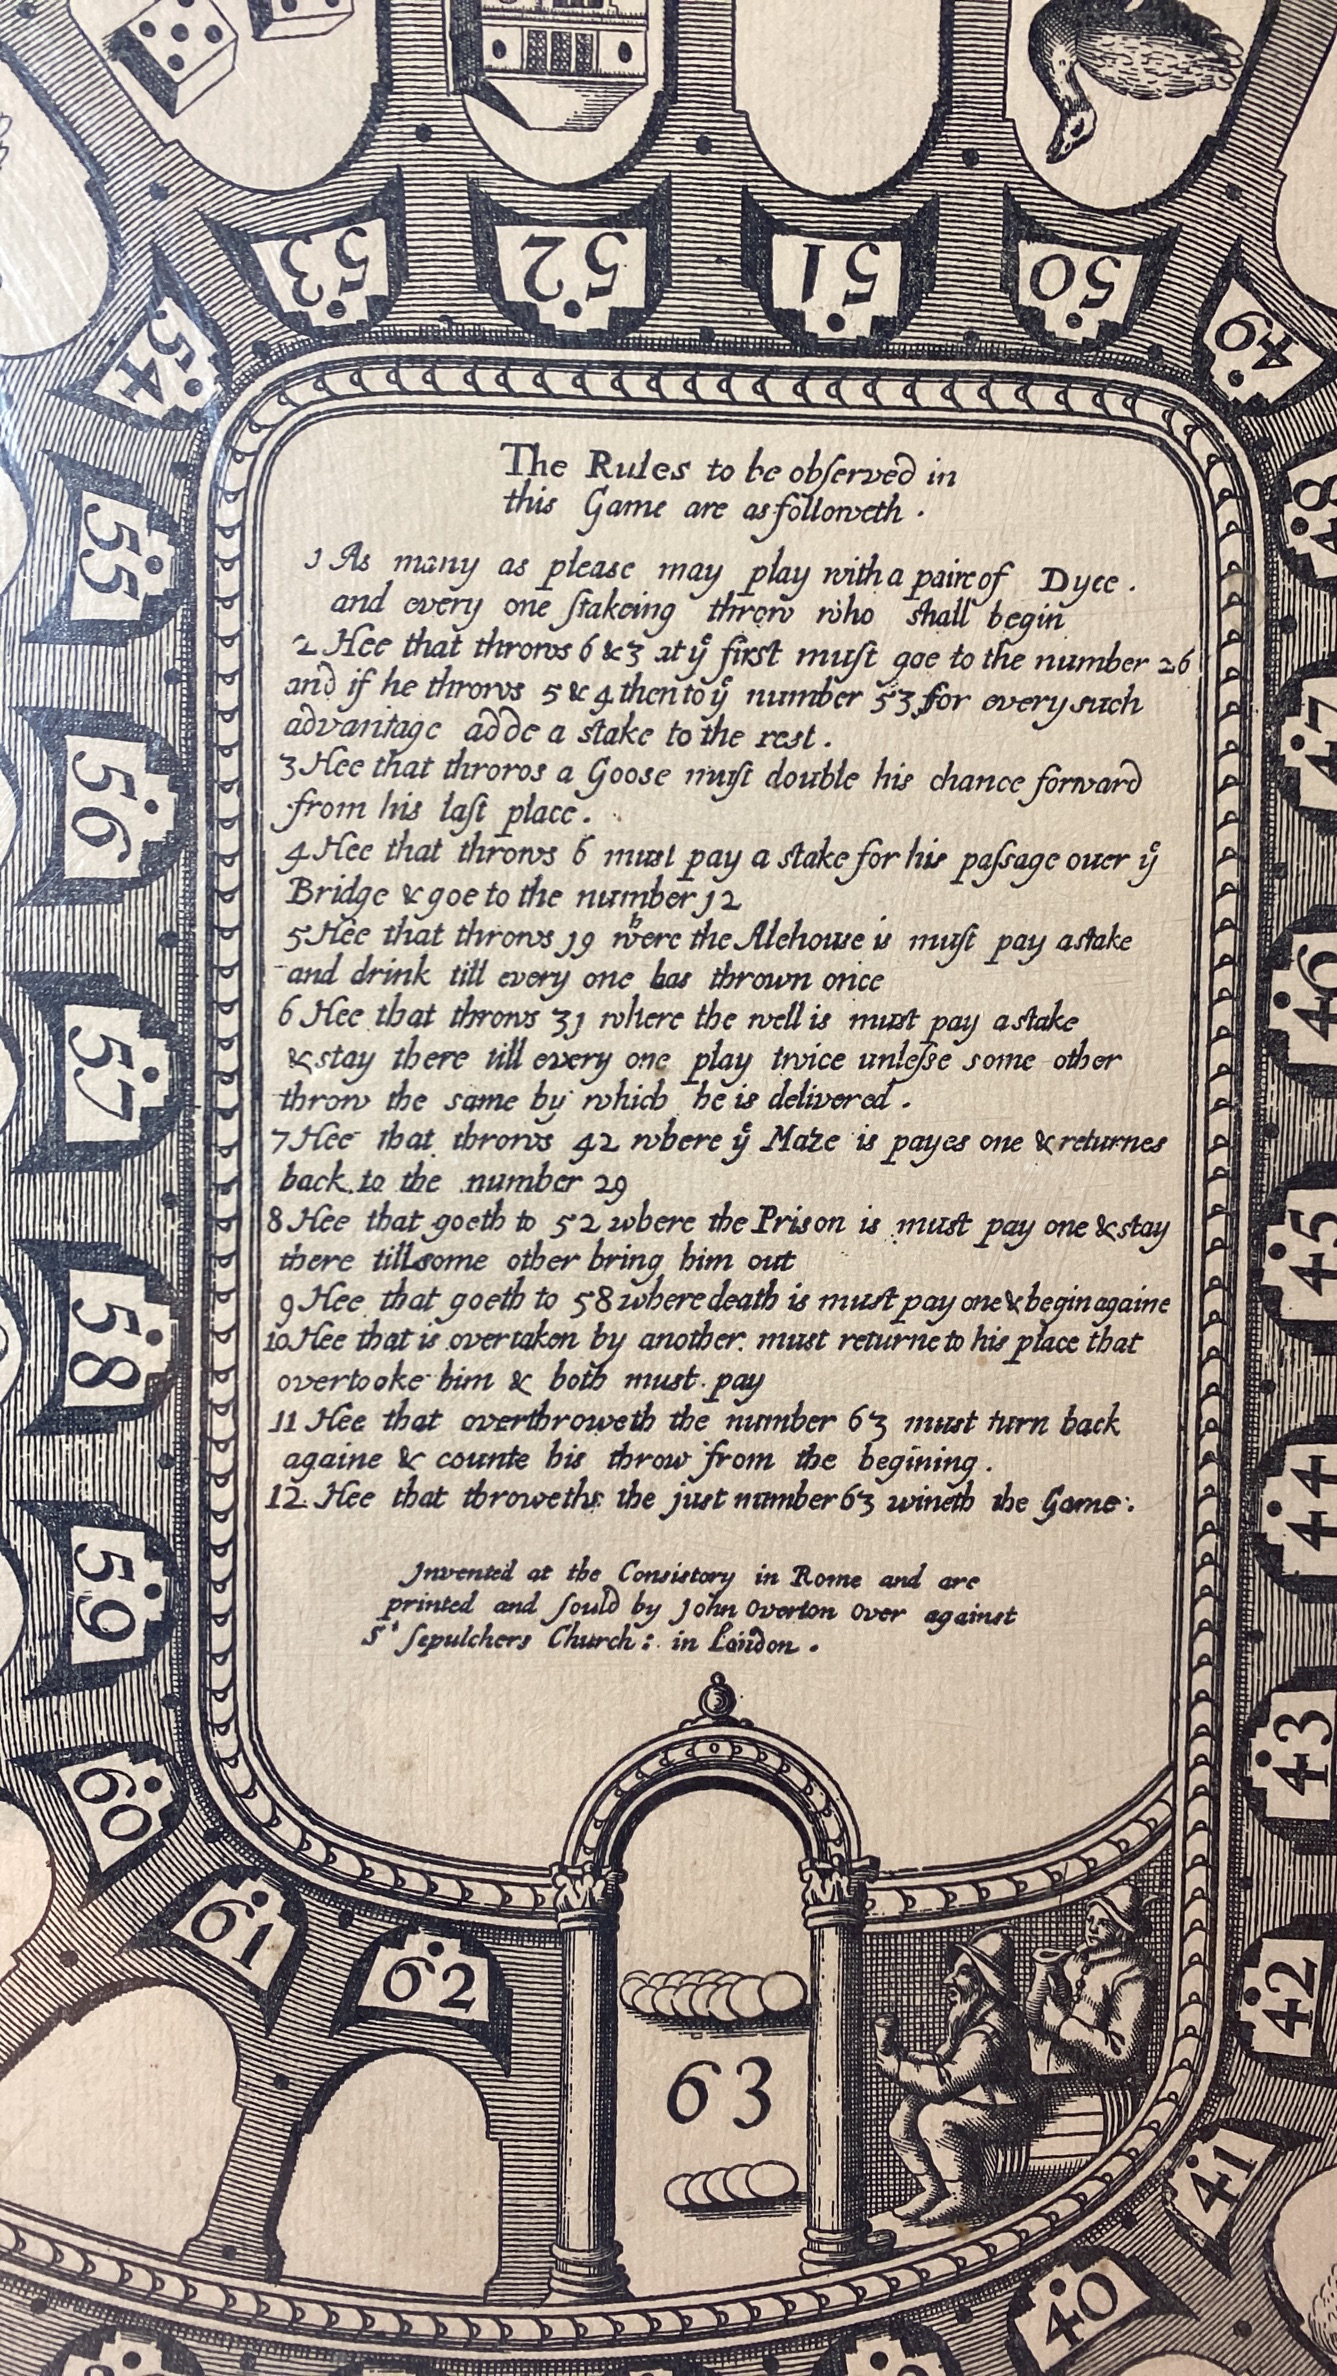 53
52
51
50
54
49
The Rules to be obſerved in
this Game are as followeth .
1 As many as please may play with a paire of Dyce .
and every one ſtakeing throw who shall begin
2 Hee that throws 6 & 3 at yͤ firſt muſt goe to the number 26
and if he throws 5 & 4 then to yͤ number 53, for every such
advantage adde a stake to the rest .
3 Hee that throws a Gooſe muſt double his chance forward
from his laſt place .
4 Hee that throws 6 must pay a stake for his paſsage over yͤ
Bridge & goe to the number 12
5 Hee that throws 19 wʰere the Alehouse is muſt pay a stake
and drink till every one has thrown once
6 Hee that throws 31 where the well is must pay a stake
& stay there till every one play twice unleſse some other
throw the same by which he is delivered .
7 Hee that throws 42 where yͤ Maze is payes one & returnes
back to the number 29
8 Hee that goeth to 52 where the Prison is must pay one & stay
there till some other bring him out
9 Hee that goeth to 58 where death is must pay one & begin againe
10 Hee that is overtaken by another must returne to his place that
overtooke him & both must pay
11 Hee that overthroweth the number 63 must turn back
againe & counte his throw from the begining .
12 Hee that throweth the just number 63 wineth the Game .
Invented at the Consistory in Rome and are
printed and ſould by John Overton over against
Sᵗ Sepulchers Church : in London .
55
56
57
58
59
60
61
62
63
48
47
46
45
44
43
42
41
40